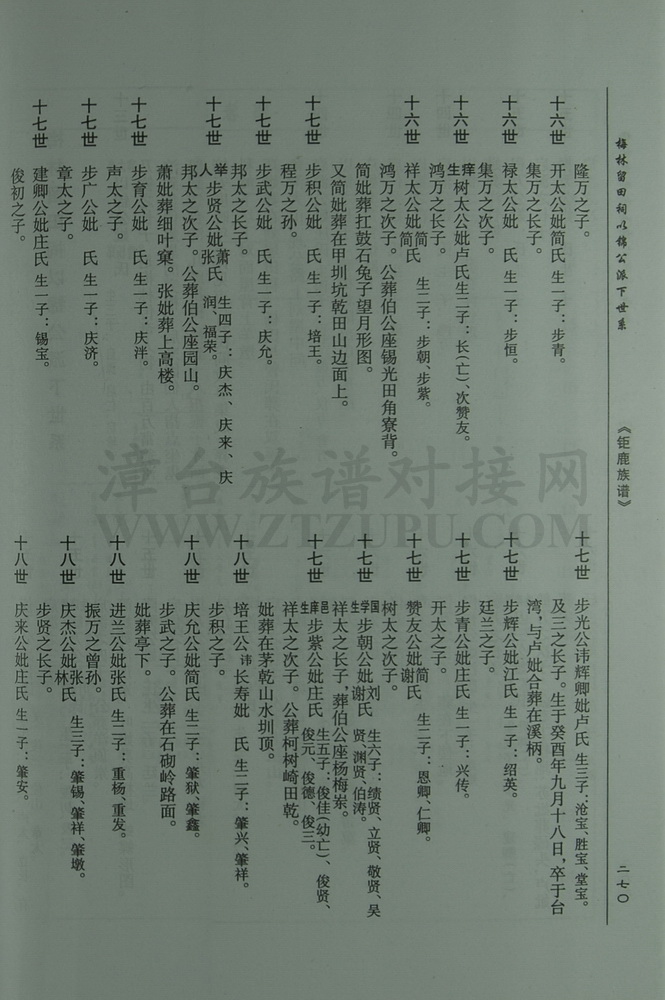 梅林留田祠以锦公派下世系
《钜鹿族谱》
二七〇
隆万之子。
十六世 开太公妣简氏 生一子：步青。
集万之长子。
十六世 禄太公妣 氏 生一子：步恒。
集万之次子。
十六世 庠生树太公妣卢氏 生二子：长(亡)、次赞友。
鸿万之长子。
十六世 祥太公妣简简氏 生二子：步朝、步紫。
鸿万之次子。公葬伯公座锡光田角寮背。
简妣葬扛鼓石兔子望月形图。
又简妣葬在甲圳坑乾田山边面上。
十七世 步积公妣 氏 生一子：培王。
程万之孙。
十七世 步武公妣 氏 生一子：庆允。
邦太之长子。
十七世 举人步贤公妣萧张氏 生四子：庆杰、庆来、庆润、福荣。
邦太之次子。公葬伯公座园山。
萧妣葬细叶窠。张妣葬上高楼。
十七世 步育公妣 氏 生一子：庆泮。
声太之子。
十七世 步广公妣 氏 生一子：庆济。
章太之子。
十七世 建卿公妣庄氏 生一子：锡宝。
俊初之子。
十七世 步光公讳辉卿妣卢氏 生三子：沧宝、胜宝、堂宝。
及三之长子。生于癸酉年九月十八日，卒于台
湾，与卢妣合葬在溪柄。
十七世 步辉公妣江氏 生一子：绍英。
廷兰之子。
十七世 步青公妣庄氏 生一子：兴传。
开太之子。
十七世 赞友公妣简谢氏 生二子：恩卿、仁卿。
树太之次子。
十七世 国学生步朝公妣刘谢氏 生六子：绩贤、立贤、敬贤、吴贤、渊贤、伯涛。
祥太之长子，葬伯公座杨梅岽。
十七世 邑庠生步紫公妣庄氏 生五子：俊佳(幼亡)、俊贤、俊元、俊德、俊三。
祥太之次子。公葬柯树崎田乾。
妣葬在茅乾山水圳顶。
十八世 培王公讳长寿妣 氏 生二子：肇兴、肇祥。
步积之子。
十八世 庆允公妣简氏 生二子：肇狱、肇鑫。
步武之子。公葬在石砌岭路面。
妣葬亭下。
十八世 进兰公妣张氏 生二子：重杨、重发。
振万之曾孙。
十八世 庆杰公妣张林氏 生三子：肇锡、肇祥、肇墩。
步贤之长子。
十八世 庆来公妣庄氏 生一子：肇安。
漳台族谱对接网
WWW.ZTZUPU.COM